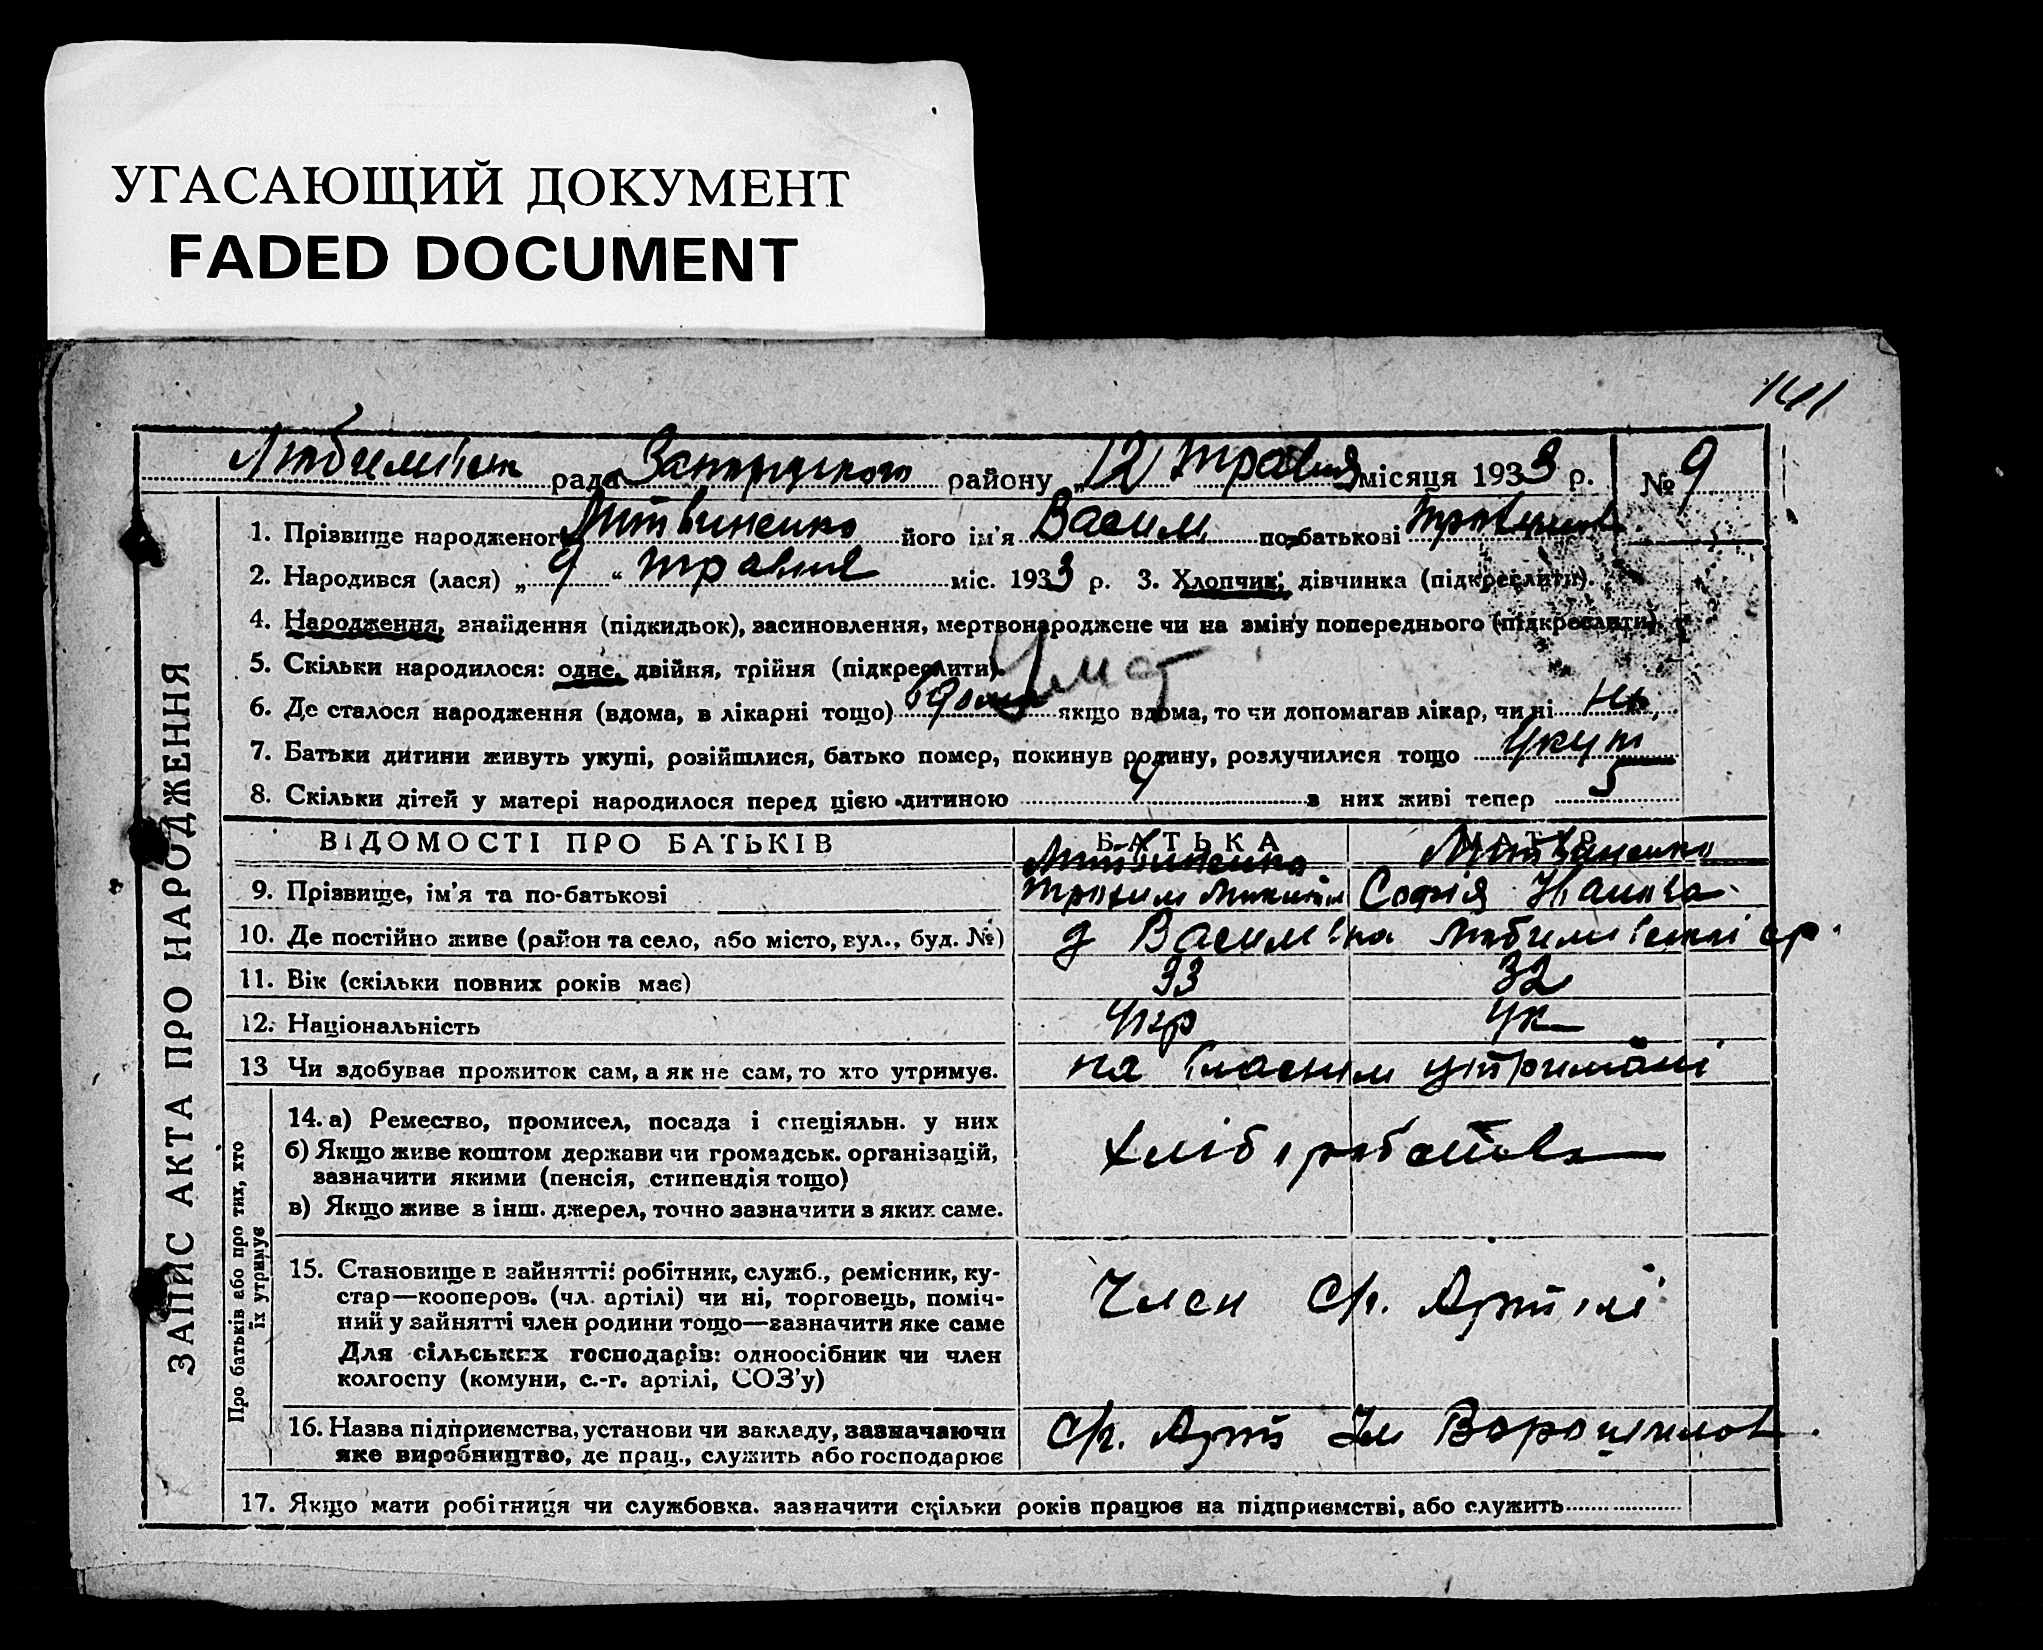 УГАСАЮЩИЙ ДОКУМЕНТ
FADED DOCUMENT
141
рада району „12" травня місяця 1933 р. № 9
1. Прізвище народженого Литвиненко його ім'я Васил по-батькові
2. Народився (лася) „ 9 “ травня міс. 1933 р. 3. Хлопчик, дівчинка (підкреслити).
4. Народження, знайдення (підкидьок), засиновлення, мертвонароджене чи на зміну попереднього (підкреслити).
5. Скільки народилося: одне, двійня, трійня (підкреслити).
6. Де сталося народження (вдома, в лікарні тощо) якщо вдома, то чи допомагав лікар, чи ні
7. Батьки дитини живуть укупі, розійшлися, батько помер, покинув родину, розлучилися тощо укупі
8. Скільки дітей у матері народилося перед цією дитиною 4 з них живі тепер
ВІДОМОСТІ ПРО БАТЬКІВ БАТЬКА МАТІР
Литвиненко Литвиненко
9. Прізвище, ім'я та по-батькові Трохим Софія
10. Де постійно живе (район та село, або місто, вул., буд. №) Василівка
11. Вік (скільки повних років має) 33 32
12. Національність Укр Ук
13 Чи здобуває прожиток сам, а як не сам, то хто утримує. на власнім утриманні
14. а) Ремество, промисел, посада і спеціяльн. у них
б) Якщо живе коштом держави чи громадськ. організацій,
зазначити якими (пенсія, стипендія тощо)
в) Якщо живе з інш. джерел, точно зазначити з яких саме.
15. Становище в зайнятті: робітник, служб., ремісник, ку-
стар—кооперов. (чл. артілі) чи ні, торговець, поміч-
ний у зайнятті член родини тощо—зазначити яке саме
Член с/г. Артілі
Для сільських господарів: одноосібник чи член
колгоспу (комуни, с.-г. артілі, СОЗ'у)
16. Назва підприємства, установи чи закладу, зазначаючи
яке виробництво, де прац., служить або господарює
с/г. Арт Ім Ворошилов
17. Якщо мати робітниця чи службовка. зазначити скільки років працює на підприємстві, або служить
ЗАПИС АКТА ПРО НАРОДЖЕННЯ
Про батьків або про тих, хто
їх утримує